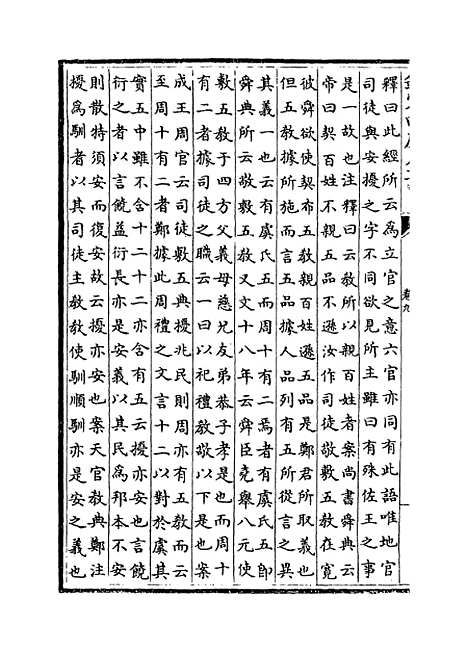 釋曰此經所云爲立官之意六官亦同有此語唯地官
司徒與安擾之字不同欲見所主雖曰有殊佐王之事
是一故也注釋曰云敎所以親百姓者案尚書舜典云
帝曰契百姓不親五品不遜汝作司徒敬敷五敎在寛
彼舜欲使契布五敎親百姓遜五品是鄭君所取義也
但五敎據所施而言五品據人品列有五所從言之異
其義一也云有虞氏五而周十有二焉者有虞氏五卽
舜典所云敬敷五敎又文十八年云舜臣堯舉八元使
敷五敎于四方父義母慈兄友弟恭子孝是也而周十
有二者據司徒之職云一曰以祀禮敎敬以下是也案
成王周官云司徒敷五典擾兆民則周亦有五敎而云
至周十有二者鄭據此周禮之文言十二以對於虞其
實五中雖不含十二十二亦含有五云擾亦安也言饒
衍之者以言饒益衍長亦是安義以其民爲邦本不安
則散特須安而復安故云擾亦安也案天官敎典鄭注
擾爲馴者以其司徒主敎敎使馴順馴亦是安之義也
卷九